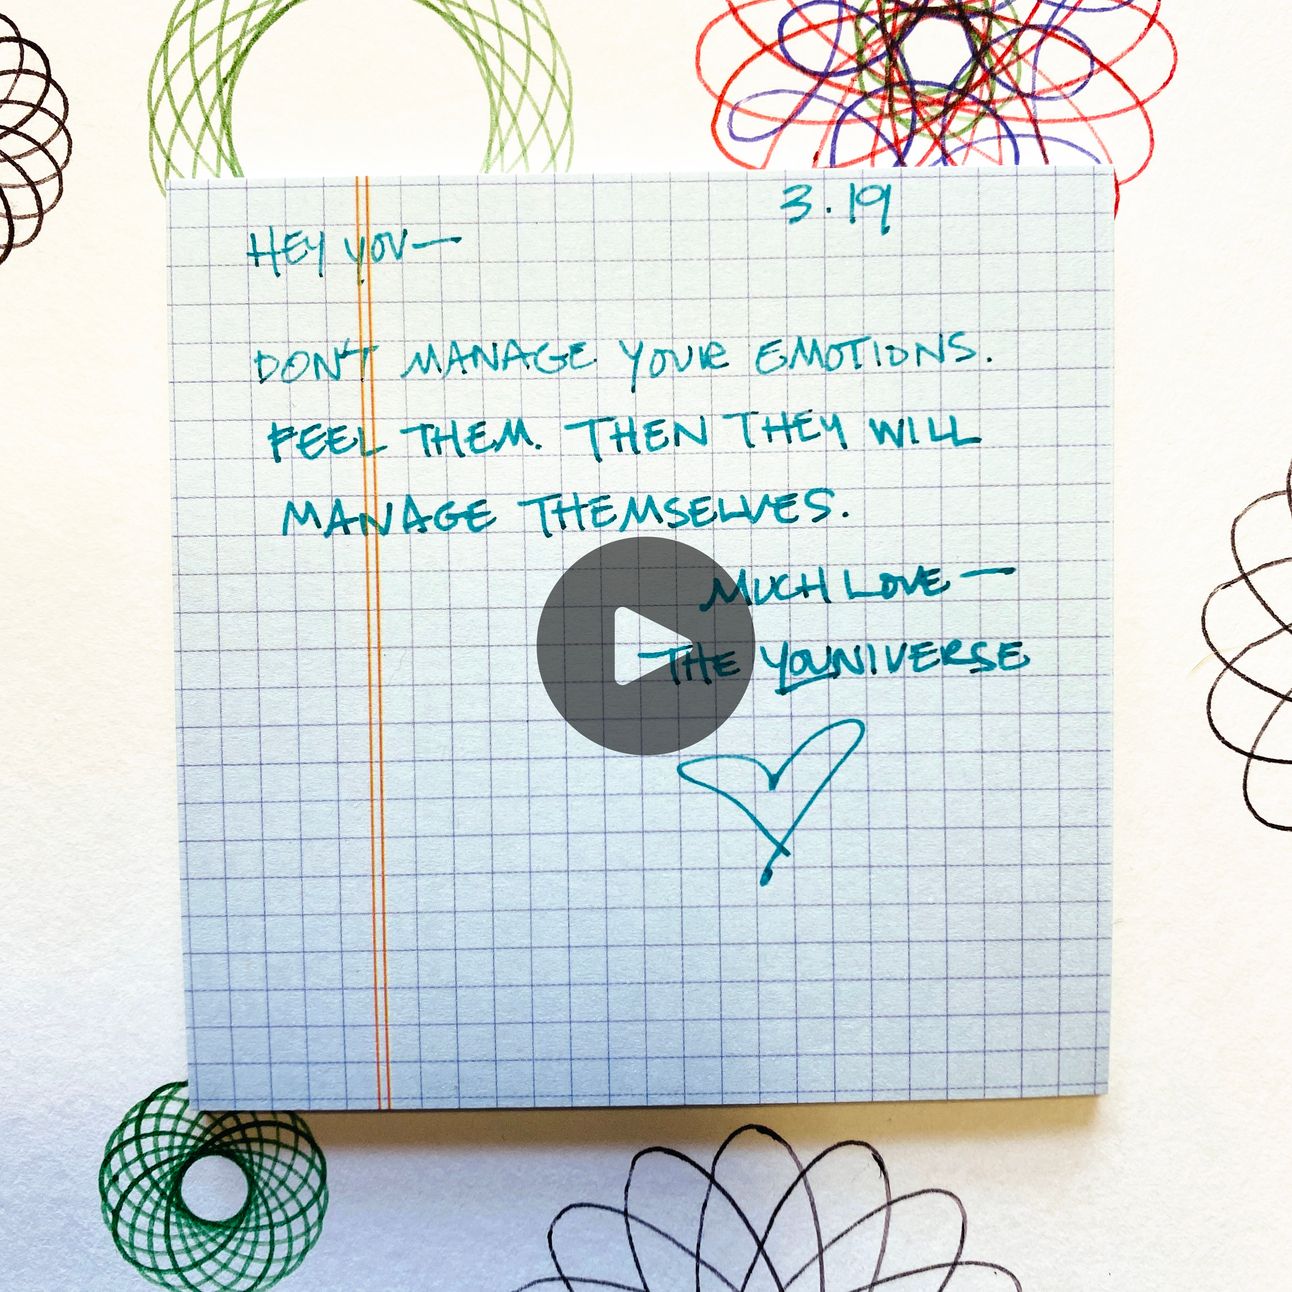 3.19
HEY YOU—
DON'T MANAGE YOUR EMOTIONS.
FEEL THEM. THEN THEY WILL
MANAGE THEMSELVES.
MUCH LOVE—
THE YOUNIVERSE